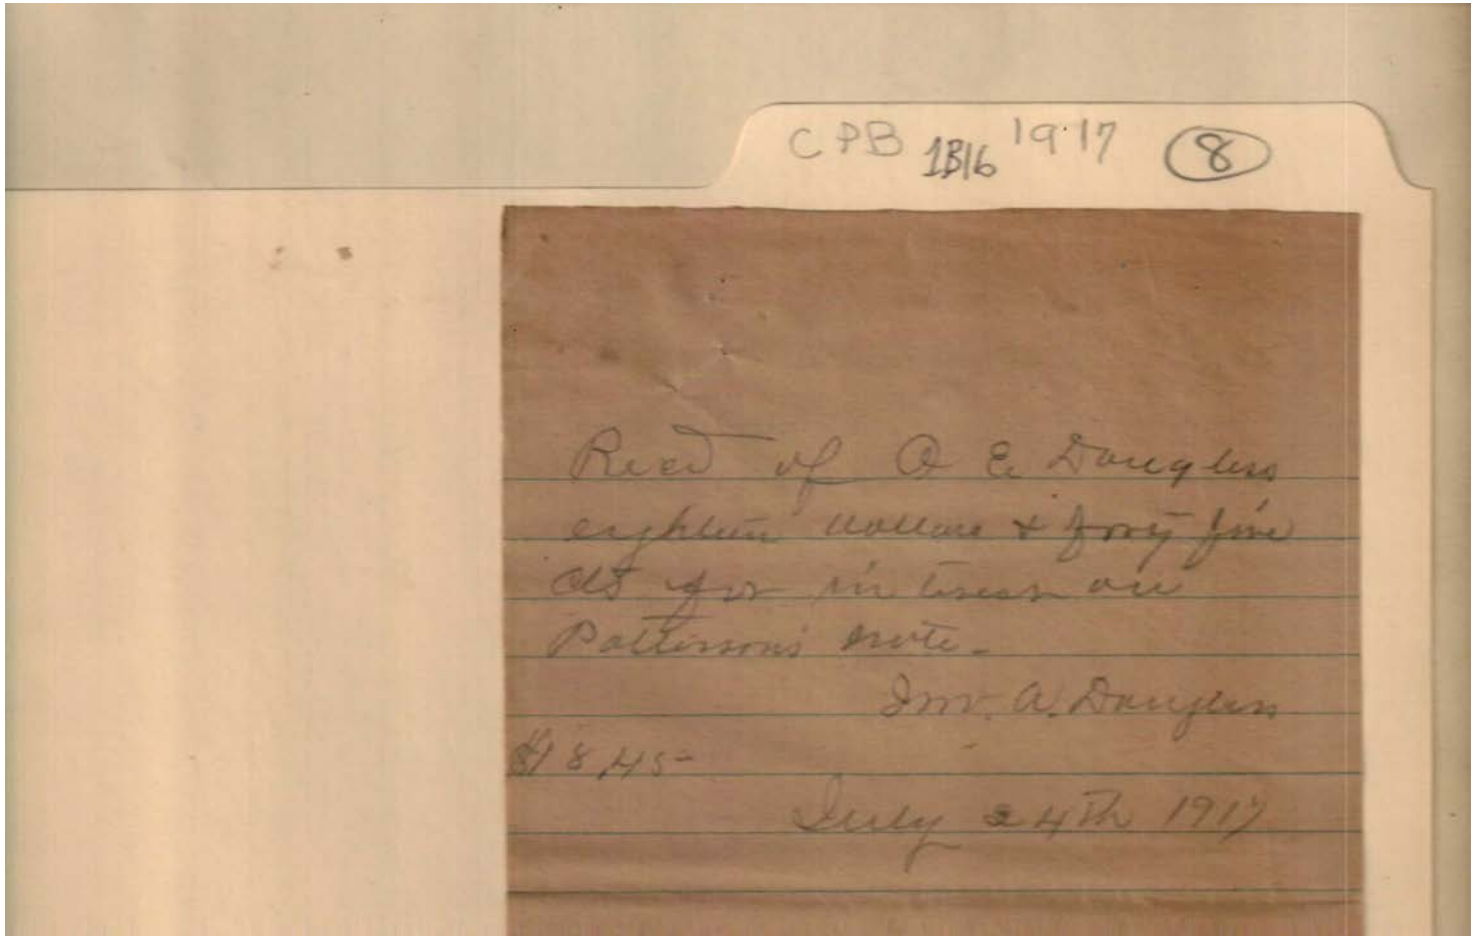 CPB 1B16 1917 8
Recd of A E Douglass
eighteen dollars & forty five
cts for interest on
Pattersons note -
Jno. A. Douglass
$18,45-
July 24th 1917